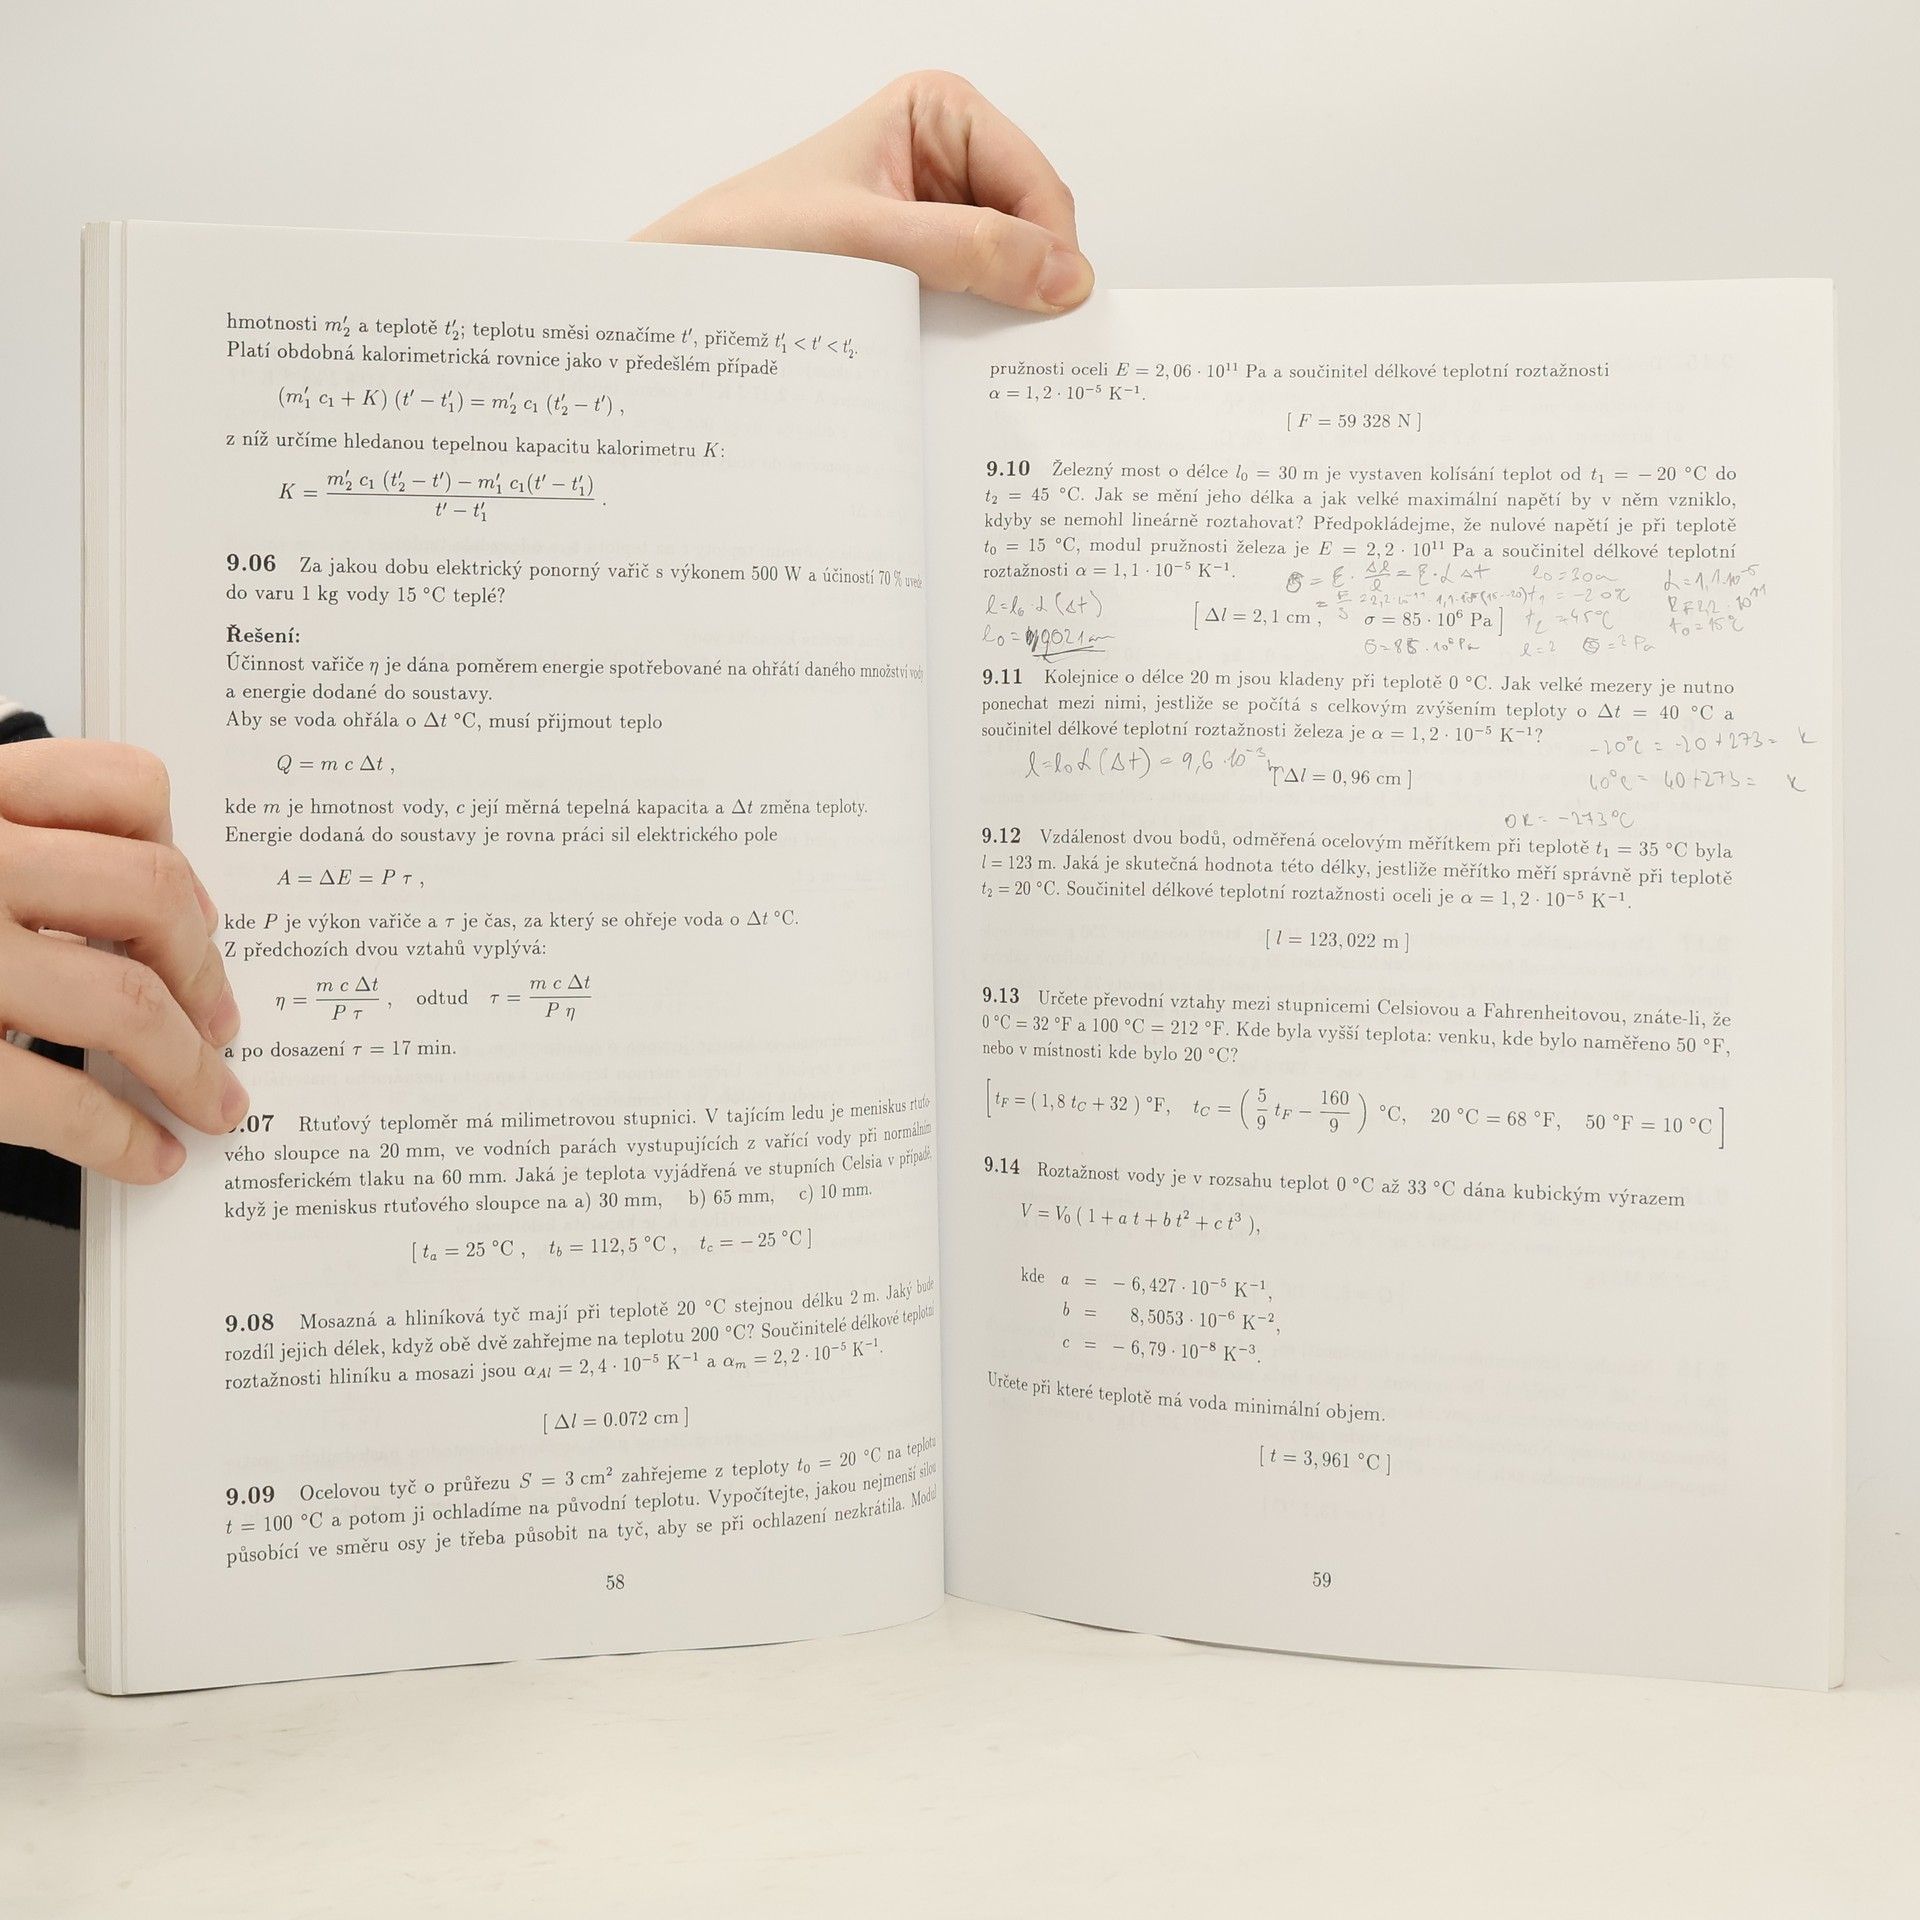 hmotnosti m′₂ a teplotě t′₂; teplotu směsi označíme t′, přičemž t′₁ < t′ < t′₂.
Platí obdobná kalorimetrická rovnice jako v předešlém případě
(m′₁ c₁ + K) (t′ − t′₁) = m′₂ c₁ (t′₂ − t′) ,
z níž určíme hledanou tepelnou kapacitu kalorimetru K:
K = (m′₂ c₁ (t′₂ − t′) − m′₁ c₁(t′ − t′₁)) / (t′ − t′₁) .
9.06 Za jakou dobu elektrický ponorný vařič s výkonem 500 W a účiností 70 % uvede
do varu 1 kg vody 15 °C teplé?
Řešení:
Účinnost vařiče η je dána poměrem energie spotřebované na ohřátí daného množství vody
a energie dodané do soustavy.
Aby se voda ohřála o Δt °C, musí přijmout teplo
Q = m c Δt ,
kde m je hmotnost vody, c její měrná tepelná kapacita a Δt změna teploty.
Energie dodaná do soustavy je rovna práci sil elektrického pole
A = ΔE = P τ ,
kde P je výkon vařiče a τ je čas, za který se ohřeje voda o Δt °C.
Z předchozích dvou vztahů vyplývá:
η = (m c Δt) / (P τ) , odtud τ = (m c Δt) / (P η)
a po dosazení τ = 17 min.
.07 Rtuťový teploměr má milimetrovou stupnici. V tajícím ledu je meniskus rtuťo-
vého sloupce na 20 mm, ve vodních parách vystupujících z vařící vody při normálním
atmosferickém tlaku na 60 mm. Jaká je teplota vyjádřená ve stupních Celsia v případě,
když je meniskus rtuťového sloupce na a) 30 mm, b) 65 mm, c) 10 mm.
[ tₐ = 25 °C , t_b = 112,5 °C , t_c = − 25 °C ]
9.08 Mosazná a hliníková tyč mají při teplotě 20 °C stejnou délku 2 m. Jaký bude
rozdíl jejich délek, když obě dvě zahřejme na teplotu 200 °C? Součinitelé délkové teplotní
roztažnosti hliníku a mosazi jsou α_Al = 2,4 · 10⁻⁵ K⁻¹ a α_m = 2,2 · 10⁻⁵ K⁻¹.
[ Δl = 0.072 cm ]
9.09 Ocelovou tyč o průřezu S = 3 cm² zahřejeme z teploty t₀ = 20 °C na teplotu
t = 100 °C a potom ji ochladíme na původní teplotu. Vypočítejte, jakou nejmenší silou
působící ve směru osy je třeba působit na tyč, aby se při ochlazení nezkrátila. Modul
58
pružnosti oceli E = 2,06 · 10¹¹ Pa a součinitel délkové teplotní roztažnosti
α = 1,2 · 10⁻⁵ K⁻¹.
[ F = 59 328 N ]
9.10 Železný most o délce l₀ = 30 m je vystaven kolísání teplot od t₁ = − 20 °C do
t₂ = 45 °C. Jak se mění jeho délka a jak velké maximální napětí by v něm vzniklo,
kdyby se nemohl lineárně roztahovat? Předpokládejme, že nulové napětí je při teplotě
t₀ = 15 °C, modul pružnosti železa je E = 2,2 · 10¹¹ Pa a součinitel délkové teplotní
roztažnosti α = 1,1 · 10⁻⁵ K⁻¹.
σ = E · Δl/l = E · α Δt l₀ = 30m α = 1,1 · 10⁻⁵
l = l₀ · α (Δt) t₁ = −20°C
[ Δl = 2,1 cm , σ = 85 · 10⁶ Pa ] t₂ = 45°C t₀ = 15°C
l₀ = 0,021m l = ? σ = ? Pa
9.11 Kolejnice o délce 20 m jsou kladeny při teplotě 0 °C. Jak velké mezery je nutno
ponechat mezi nimi, jestliže se počítá s celkovým zvýšením teploty o Δt = 40 °C a
součinitel délkové teplotní roztažnosti železa je α = 1,2 · 10⁻⁵ K⁻¹?
−20°C = −20 + 273 = K
l = l₀ α (Δt) = 9,6 · 10⁻³ m
[ Δl = 0,96 cm ]
40°C = 40 + 273 = K
0K = −273°C
9.12 Vzdálenost dvou bodů, odměřená ocelovým měřítkem při teplotě t₁ = 35 °C byla
l = 123 m. Jaká je skutečná hodnota této délky, jestliže měřítko měří správně při teplotě
t₂ = 20 °C. Součinitel délkové teplotní roztažnosti oceli je α = 1,2 · 10⁻⁵ K⁻¹.
[ l = 123,022 m ]
9.13 Určete převodní vztahy mezi stupnicemi Celsiovou a Fahrenheitovou, znáte-li, že
0 °C = 32 °F a 100 °C = 212 °F. Kde byla vyšší teplota: venku, kde bylo naměřeno 50 °F,
nebo v místnosti kde bylo 20 °C?
[ t_F = ( 1,8 t_C + 32 ) °F, t_C = ( 5/9 t_F − 160/9 ) °C, 20 °C = 68 °F, 50 °F = 10 °C ]
9.14 Roztažnost vody je v rozsahu teplot 0 °C až 33 °C dána kubickým výrazem
V = V₀ ( 1 + a t + b t² + c t³ ),
kde a = − 6,427 · 10⁻⁵ K⁻¹,
b = 8,5053 · 10⁻⁶ K⁻²,
c = − 6,79 · 10⁻⁸ K⁻³.
Určete při které teplotě má voda minimální objem.
[ t = 3,961 °C ]
59